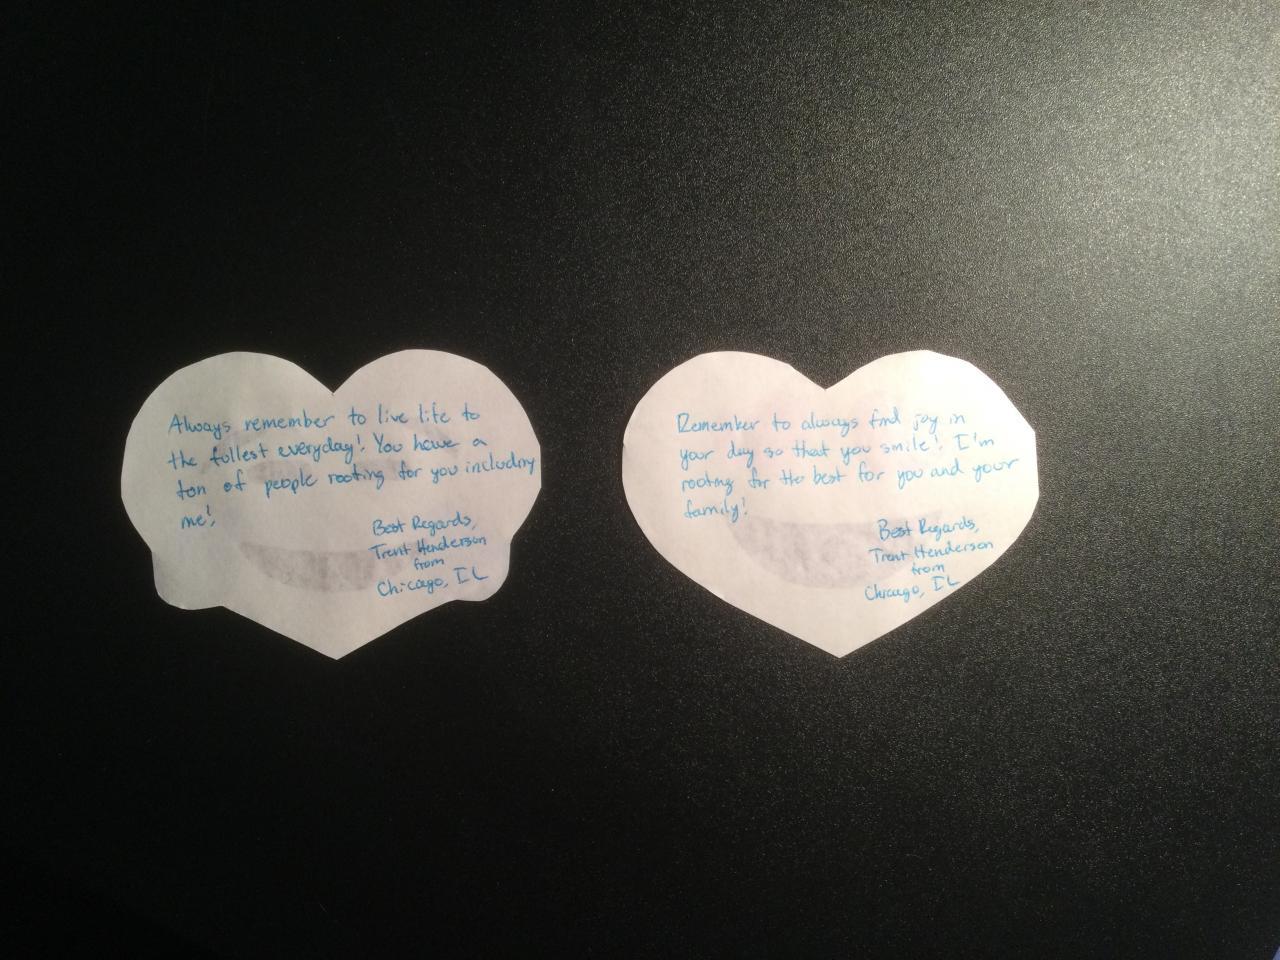 Always remember to live life to
the fullest everyday! You have a
ton of people rooting for you including
me!
Best Regards,
Trent Henderson
from
Chicago, IL
Remember to always find joy in
your day so that you smile! I'm
rooting for the best for you and your
family!
Best Regards,
Trent Henderson
from
Chicago, IL